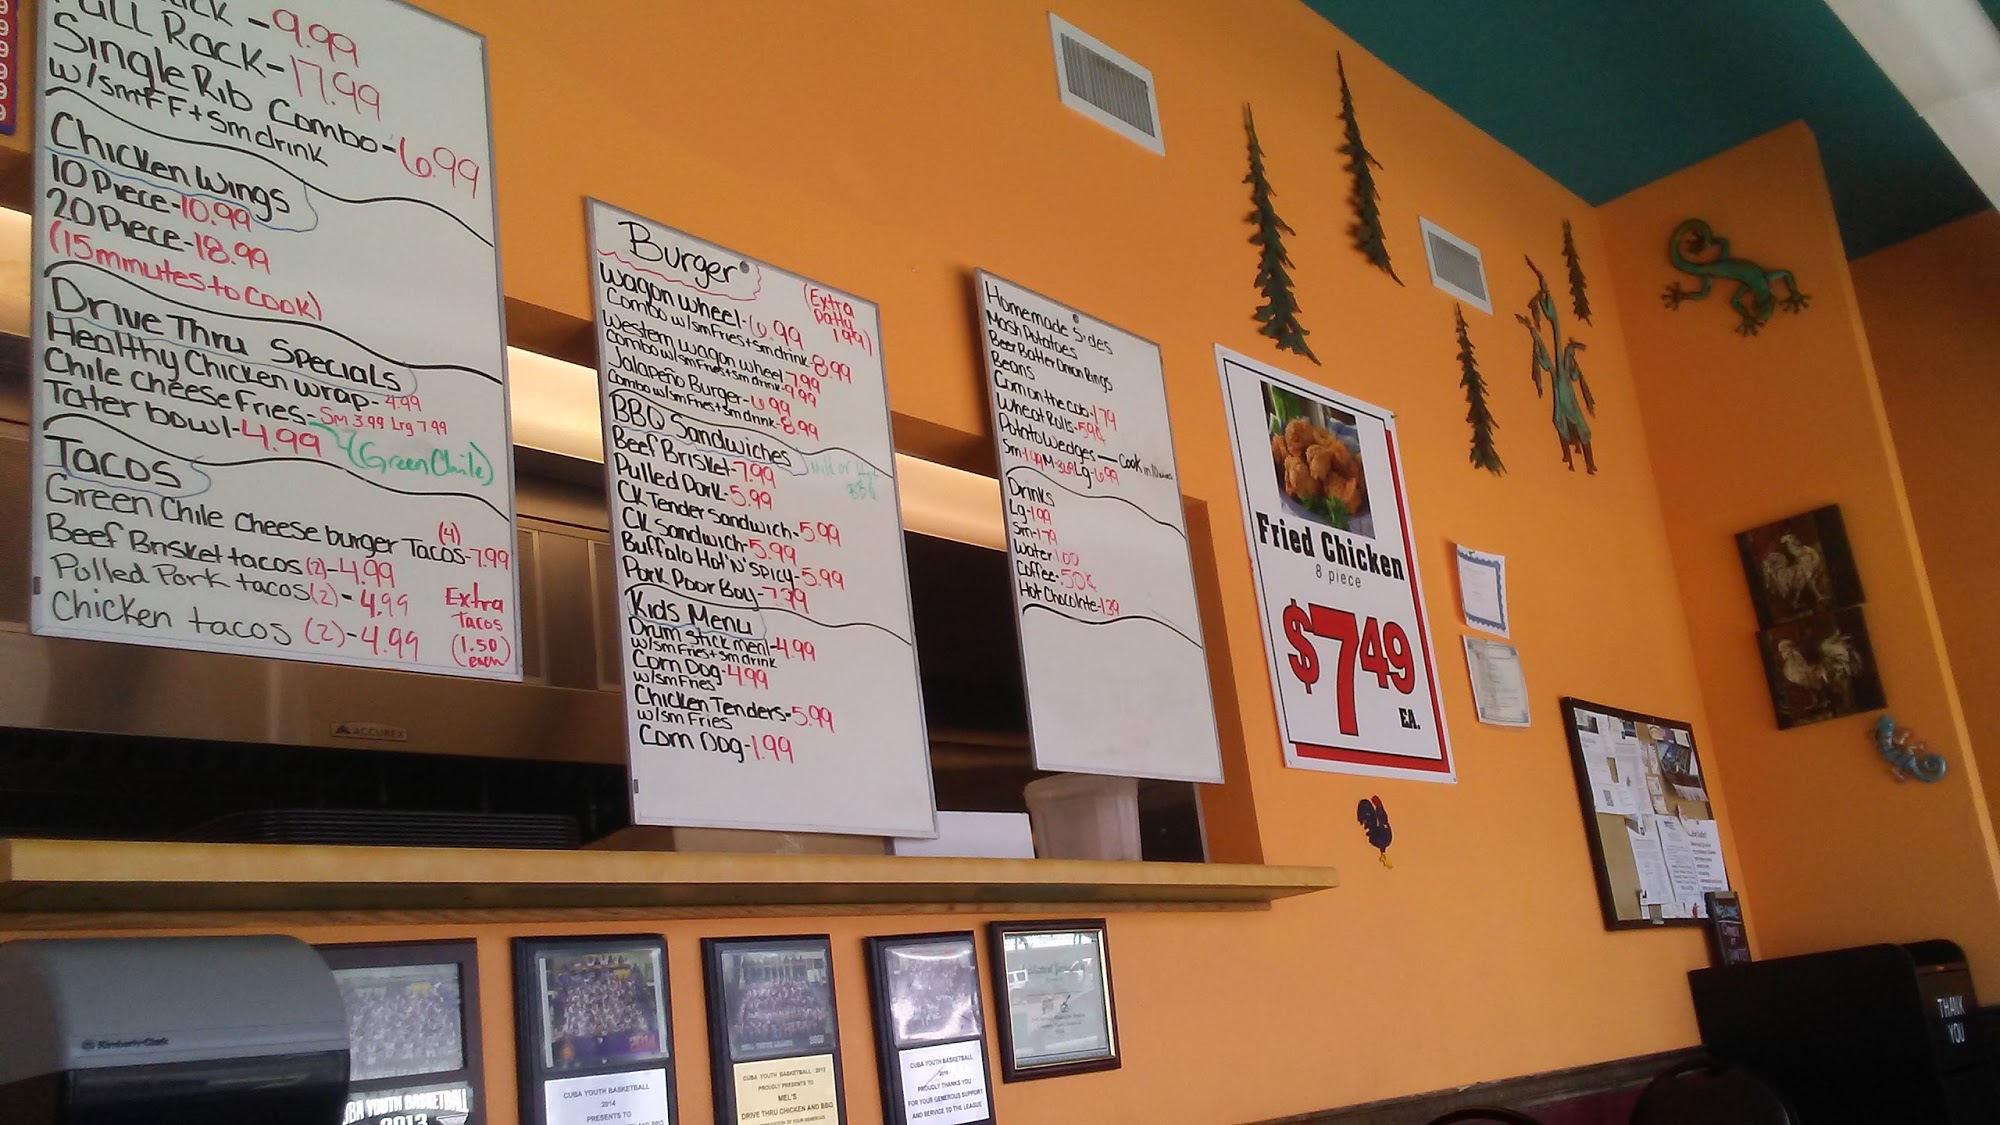 9.99
Full Rack-17.99
Single Rib Combo-6.99
w/sm FF + Sm drink
Chicken Wings
10 Piece-10.99
20 Piece-18.99
(15 minutes to cook)
Drive Thru Specials
Healthy Chicken wrap-4.99
Chile cheese fries-Sm 3.99 Lrg 7.99
Tater bowl-4.99 (Green Chile)
Tacos
Green Chile cheese burger Tacos-7.99
(4)
Beef Brisket tacos (2)-4.99
Pulled Pork tacos (2)-4.99
Chicken tacos (2)-4.99
Extra
Tacos
(1.50)
each
ACCUREX
Burger
(Extra
patty
199)
Wagon Wheel-6.99
Combo w/sm Fries+sm drink-8.99
Western wagon wheel-7.99
combo w/sm Fries+sm drink-9.99
Jalapeño Burger-6.99
Combo w/sm Fries+sm drnk-8.99
BBQ Sandwiches
Beef Brisket-7.99
Pulled Pork-5.99
CK Tender Sandwich-5.99
CK Sandwich-5.99
Buffalo Hot 'N' Spicy-5.99
Pork Poor Boy-7.39
Kids Menu
Drum stick meal-4.99
w/sm Fries+sm drink
Corn Dog-4.99
w/sm Fries
Chicken Tenders-5.99
w/sm Fries
Corn Dog-1.99
Homemade Sides
Mash Potatoes
Beer Batter Onion Rings
Beans
Corn on the cob-1.79
Wheat Rolls-.59¢
Potato Wedges — Cook in 10
Lg-6.99
Drinks
Lg-1.99
Sm-1.79
Water 1.00
Coffee-.50¢
Hot Chocolate-1.39
Fried Chicken
8 piece
$7.49
EA.
THANK
YOU
Kimberly-Clark
CUBA YOUTH BASKETBALL
2013
2014
CUBA YOUTH BASKETBALL
2014
PRESENTS TO
CUBA YOUTH BASKETBALL
PROUDLY PRESENTS TO
MEL'S
DRIVE THRU CHICKEN AND BBQ
CUBA YOUTH BASKETBALL
PROUDLY THANKS YOU
FOR YOUR GENEROUS SUPPORT
AND SERVICE TO THE LEAGUE